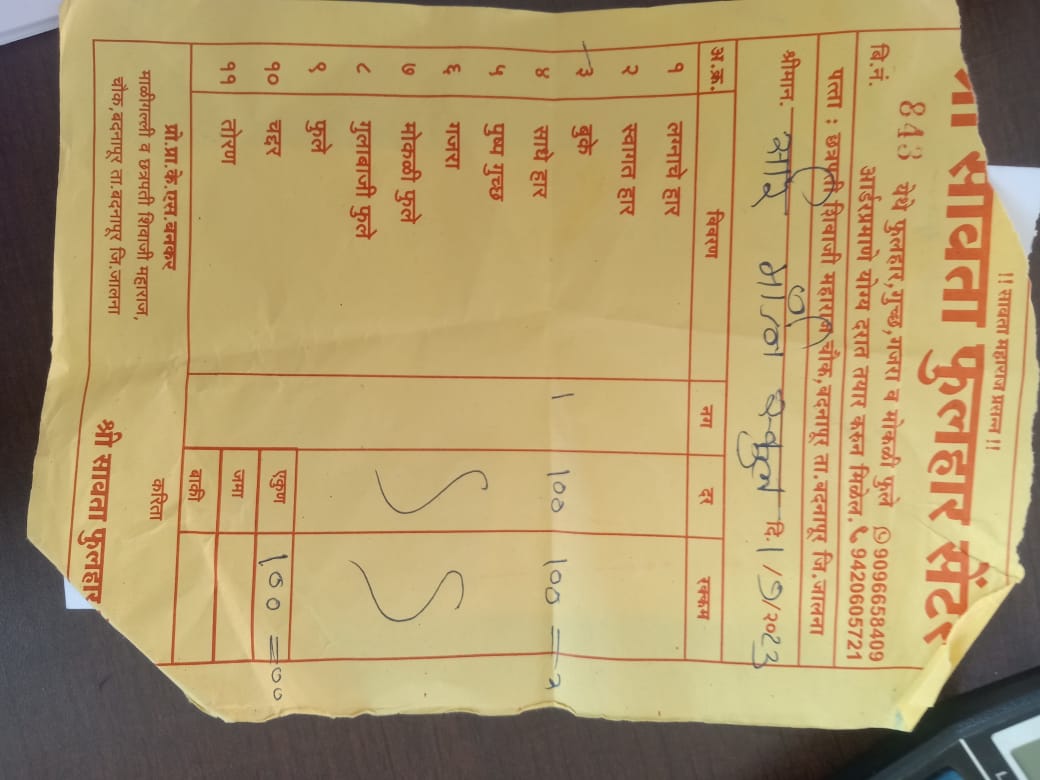 !! सावता महाराज प्रसन्न !!
सावता फुलहार सेंटर
बि.नं. 843 येथे फुलहार,गुच्छ,गजरा व मोकळी फुले 9096658409
आर्डरप्रमाणे योग्य दरात तयार करुन मिळेल. 9420605721
पत्ता : छत्रपती शिवाजी महाराज चौक,बदनापूर ता.बदनापूर जि.जालना
श्रीमान. दि. 1/9/2023
अ.क्र. विवरण नग दर रक्कम
१ लग्नाचे हार
२ स्वागत हार
३ बुके
४ साधे हार 1 100 100 =
५ पुष्प गुच्छ
६ गजरा
७ मोकळी फुले
८ गुलाबाची फुले
९ फुले
१० चद्दर एकुण 100 = 00
११ तोरण जमा
बाकी
प्रो.प्रा.के.एस.बनकर करिता
माळीगल्ली व छत्रपती शिवाजी महाराज,
चौक,बदनापूर ता.बदनापूर जि.जालना श्री सावता फुलहार